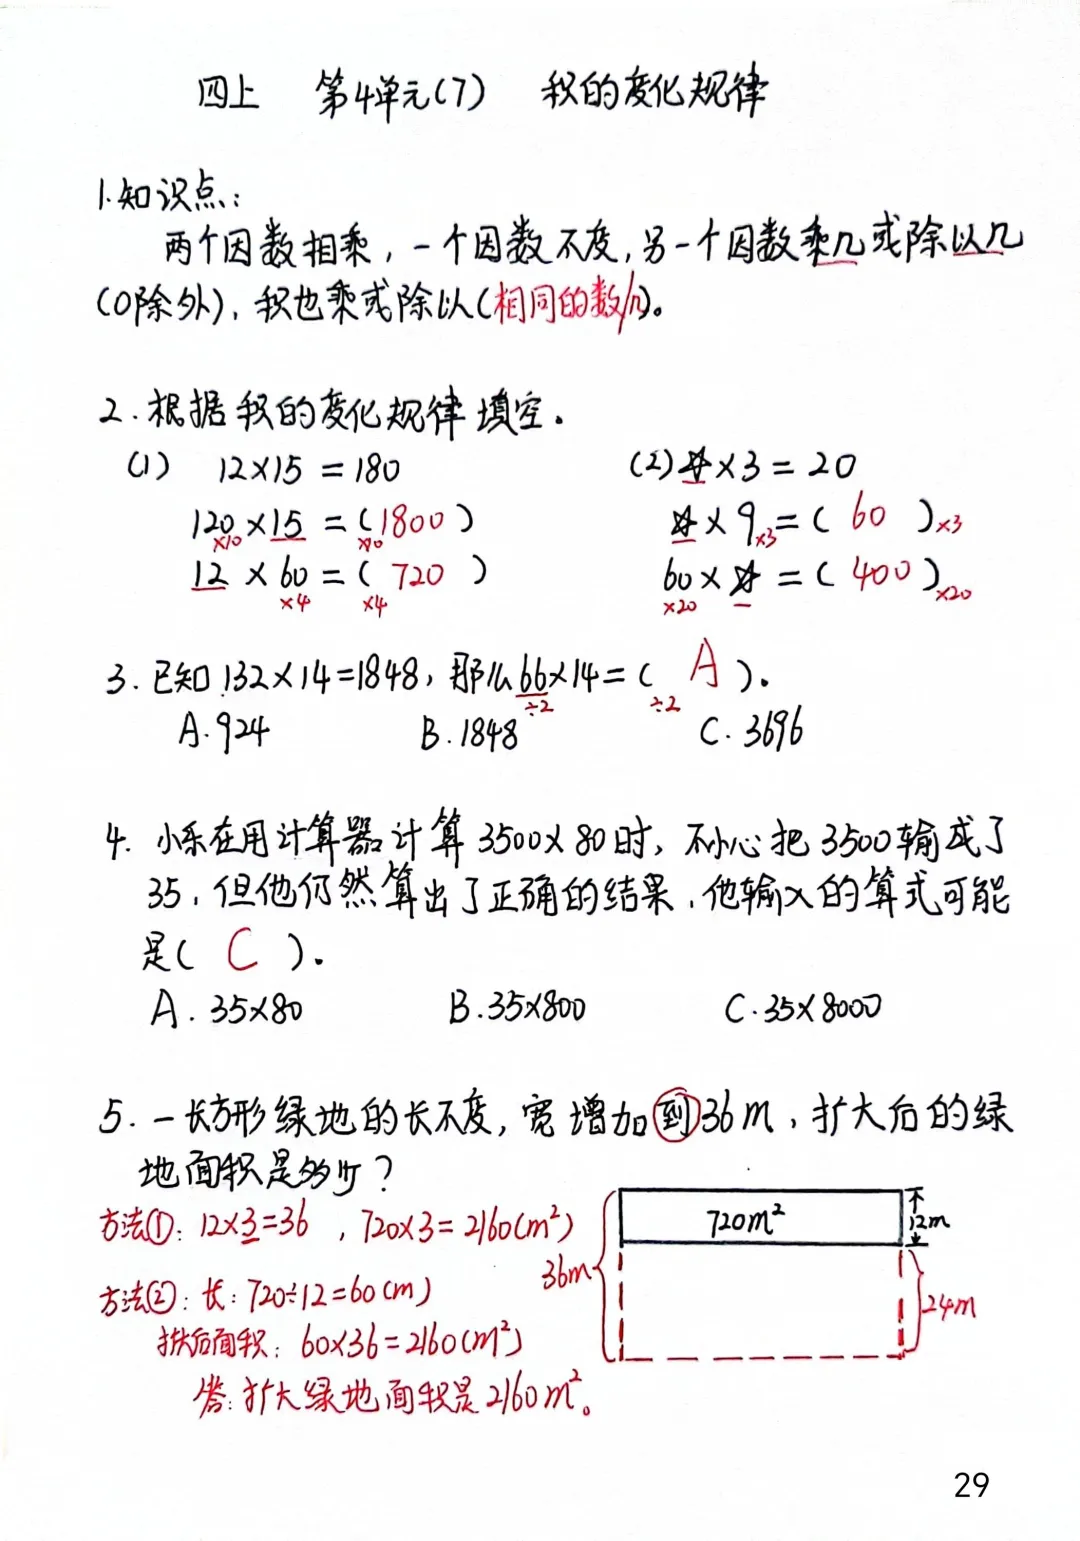 四上 第4单元(7) 积的变化规律
1.知识点:
两个因数相乘,一个因数不变,另一个因数乘几或除以几
(0除外),积也乘或除以(相同的数/几)。
2.根据积的变化规律填空。
(1) 12×15=180 (2)☆×3=20
120×15=(1800) ☆×9=(60)×3
×10 ×10 ×3
12×60=(720) 60×☆=(400)×20
×4 ×4 ×20
3.已知132×14=1848,那么66×14=(A)。
÷2 ÷2
A.924 B.1848 C.3696
4.小乐在用计算器计算3500×80时,不小心把3500输成了
35,但他仍然算出了正确的结果,他输入的算式可能
是(C)。
A.35×80 B.35×800 C.35×8000
5.一长方形绿地的长不变,宽增加到36m,扩大后的绿
地面积是多少?
方法①:12×3=36,720×3=2160(m²)
720m² 12m
36m
方法②:长:720÷12=60(m)
24m
扩后面积:60×36=2160(m²)
答:扩大绿地面积是2160m²。
29